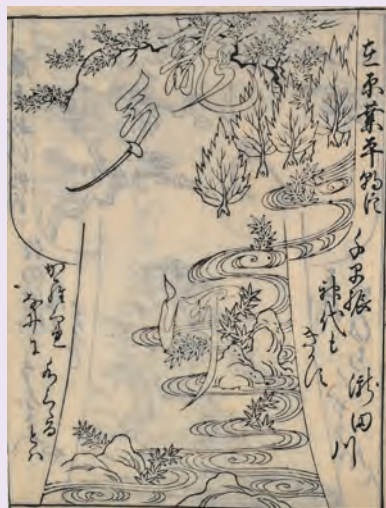 在原業平朝臣
千早振
神代も
きかす
瀧田川
からくれ
なゐに
水くゝる
とは
龍
多